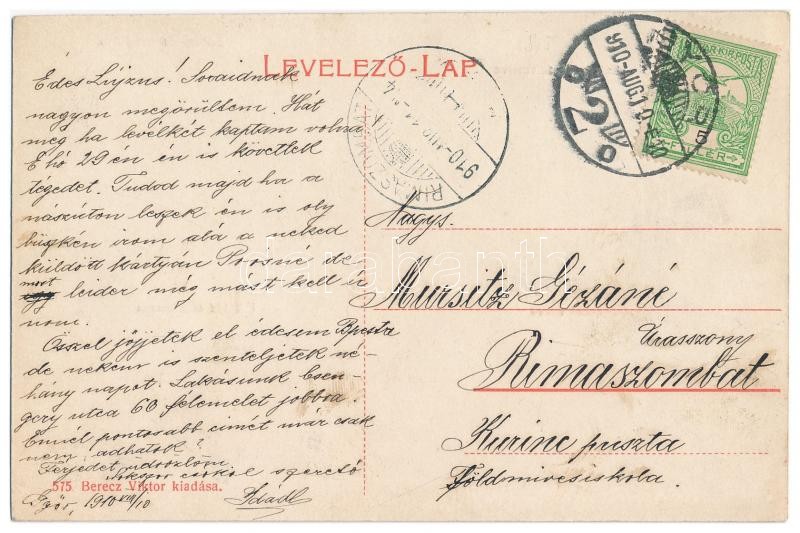 LEVELEZŐ-LAP
Édes Lujzus! Soraidnak
nagyon megörültem. Hát
még ha levélkét kaptam volna
E hó 29 én én is követlek
tégedet. Tudod majd ha a
nászúton leszek én is oly
büszkén irom alá a neked
küldött kártyán Poosné de
most leider még mást kell ir
nom.
Ősszel jőjjetek el édesem Bpestre
de nekem is szenteljetek né-
hány napot. Lakásunk Csen-
gery utca 60 félemelet jobbra.
Ennél pontosabb címet már csak
nem adhatok?
Férjedet üdvözlöm
csókol szerető
575 Berecz Viktor kiadása.
Győr, 1910 VIII/10
Nagys.
Mursitz Gézáné
Úrasszony
Rimaszombat
Kurinc puszta
Földmivesiskola.
MAGYAR KIR. POSTA
5
FILLER
910 AUG 10
GYŐR
2
RIMASZOMBAT
910 AUG
darabanth